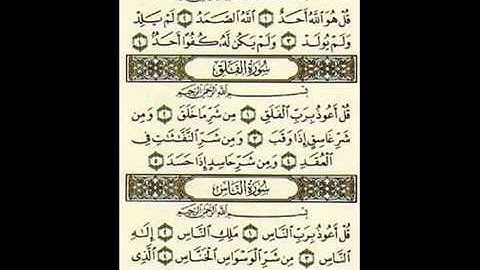 قُلْ هُوَ ٱللَّهُ أَحَدٌ ١ ٱللَّهُ ٱلصَّمَدُ ٢ لَمْ يَلِدْ
وَلَمْ يُولَدْ ٣ وَلَمْ يَكُن لَّهُۥ كُفُوًا أَحَدٌۢ ٤
سُورَةُ الْفَلَقِ
بِسْمِ ٱللَّهِ ٱلرَّحْمَٰنِ ٱلرَّحِيمِ
قُلْ أَعُوذُ بِرَبِّ ٱلْفَلَقِ ١ مِن شَرِّ مَا خَلَقَ ٢ وَمِن
شَرِّ غَاسِقٍ إِذَا وَقَبَ ٣ وَمِن شَرِّ ٱلنَّفَّٰثَٰتِ فِى
ٱلْعُقَدِ ٤ وَمِن شَرِّ حَاسِدٍ إِذَا حَسَدَ ٥
سُورَةُ النَّاسِ
بِسْمِ ٱللَّهِ ٱلرَّحْمَٰنِ ٱلرَّحِيمِ
قُلْ أَعُوذُ بِرَبِّ ٱلنَّاسِ ١ مَلِكِ ٱلنَّاسِ ٢ إِلَٰهِ
ٱلنَّاسِ ٣ مِن شَرِّ ٱلْوَسْوَاسِ ٱلْخَنَّاسِ ٤ ٱلَّذِى